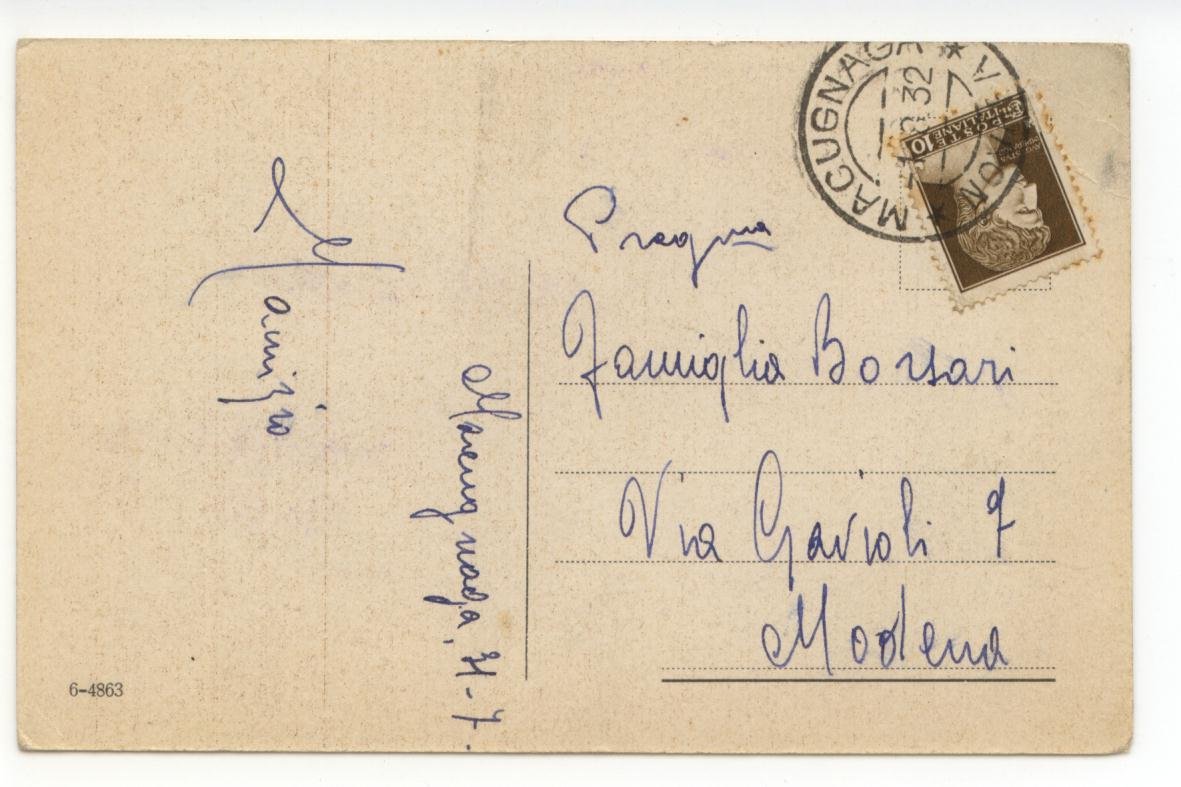 Macugnaga, 31-7.
Pregma
Famiglia Borsari
Via Gavioli 7
Modena
6-4863
MACUGNAGA * NOVARA *
8 32
POSTE ITALIANE
10